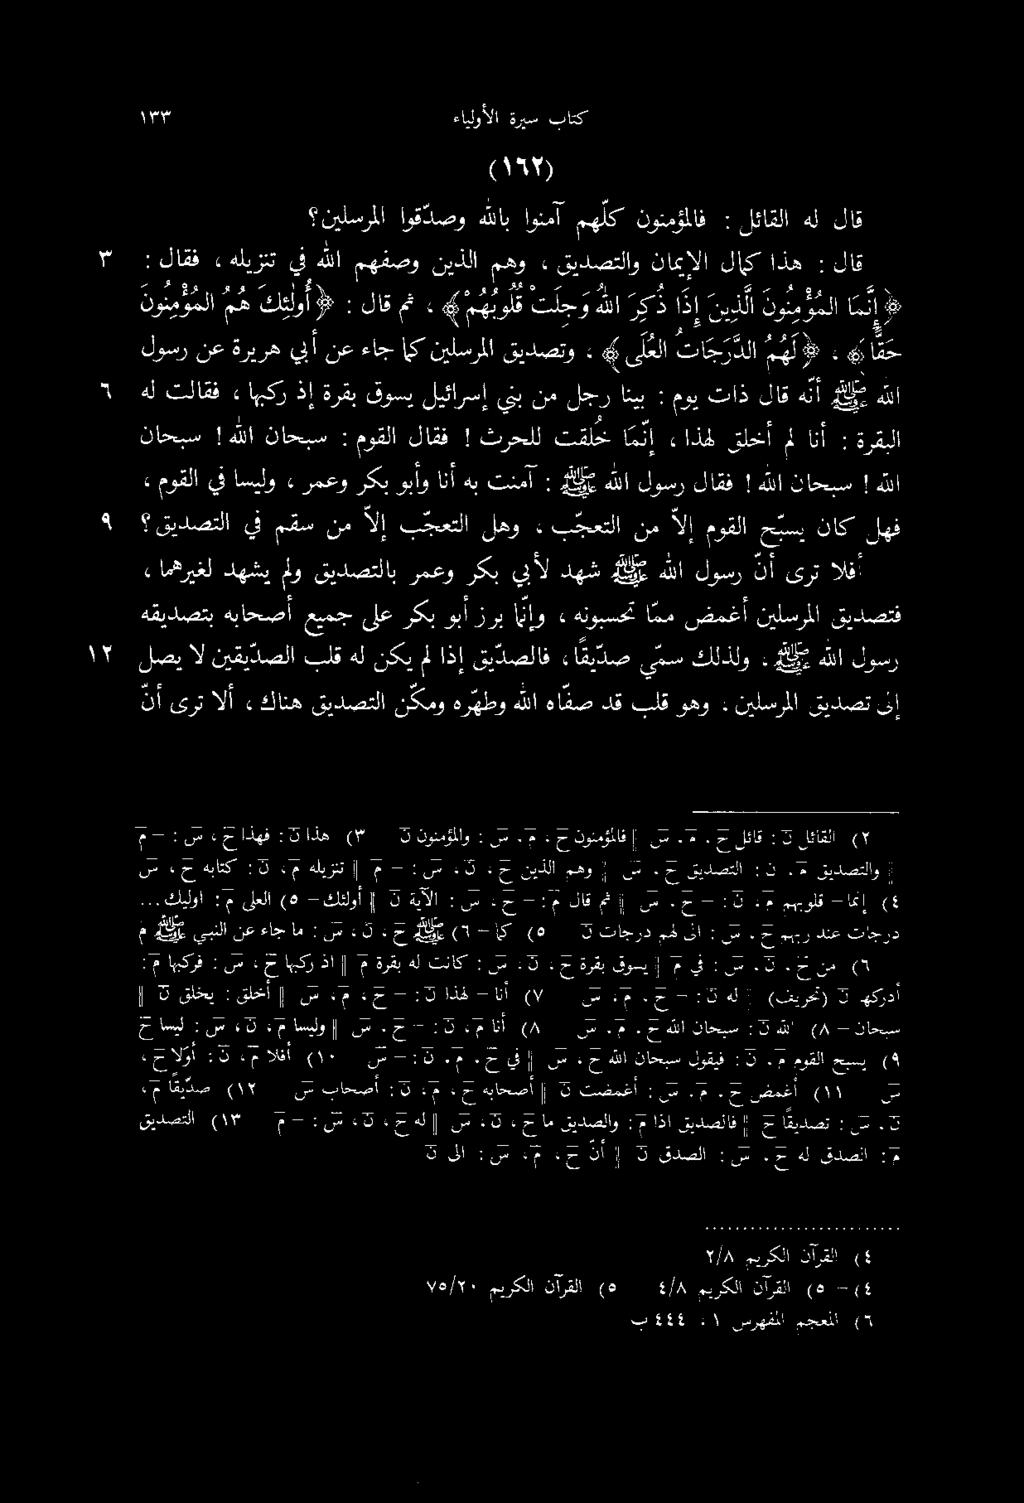 كتاب سيرة الأولياء ١٣٣
(١٦٢)
قال له القائل : فالمؤمنون كلّهم آمنوا بالله وصدّقوا المرسلين؟
قال : هذا كمال الإيمان والتصديق ، وهم الذين وصفهم الله في تنزيله ، فقال : ٣
﴿إِنَّمَا المُؤْمِنُونَ الَّذِينَ إِذَا ذُكِرَ اللهُ وَجِلَتْ قُلُوبُهُمْ﴾ ، ثم قال : ﴿أُولٰئِكَ هُمُ المُؤْمِنُونَ
حَقًّا﴾ ، ﴿لَهُمُ الدَّرَجَاتُ العُلَى﴾ ، وتصديق المرسلين كما جاء عن أبي هريرة عن رسول
الله ﷺ أنّه قال ذات يوم : بينا رجل من بني إسرائيل يسوق بقرة إذ ركبها ، فقالت له ٦
البقرة : أنا لم أخلق لهذا ، إنّما خُلقت للحرث ! فقال القوم : سبحان الله! سبحان
الله ! سبحان الله ! فقال رسول الله ﷺ : آمنت به أنا وأبو بكر وعمر ، وليسا في القوم ،
فهل كان يسبّح القوم إلاّ من التعجّب ، وهل التعجّب إلاّ من سقم في التصديق؟ ٩
أفلا ترى أنّ رسول الله ﷺ شهد لأبي بكر وعمر بالتصديق ولم يشهد لغيرهما ،
فتصديق المرسلين أغمض ممّا تحسبونه ، وإنّما برز أبو بكر على جميع أصحابه بتصديقه
رسول الله ﷺ ، ولذلك سمّي صدّيقاً ، فالصدّيق إذا لم يكن له قلب الصدّيقين لا يصل ١٢
إلى تصديق المرسلين ، وهو قلب قد صفّاه الله وطهّره ومكّن التصديق هناك ، ألا ترى أنّ
٢) القائل ن : قائل ح ، م ، س ‖ فالمؤمنون ح ، م ، س : والمؤمنون ن ٣) هذا ن : فهذا ح ، س : – م
‖ والتصديق م ، ن : التصديق ح ، س ‖ وهم الذين ح ، ن ، س : – م ‖ تنزيله م ، ن : كتابه ح ، س
٤) انما – قلوبهم م ، ن : – ح ، س ‖ ثم قال م : – ح ، س : الآية ن ‖ أولئك – ٥) العلى م : اوليك...
درجات عند ربهم ح ، س : الى لهم درجات ن ٥) كما – ٦) ﷺ ح ، ن ، س : ما جاء عن النبي ﷺ م
٦) من ح ، ن ، س : في م ‖ يسوق بقرة ح ، ن ، س : كانت له بقرة م ‖ اذ ركبها ح ، س : فركبها م :
أدركهـ ن (تحريف) ‖ له ن : – ح ، م ، س ٧) أنا – لهذا ن : – ح ، م ، س ‖ أخلق : يخلق ن ‖
سبحان – ٨) الله ن : سبحان الله ح ، م ، س ٨) أنا م ، ن : – ح ، س ‖ وليسا م ، ن ، س : ليسا ح
٩) يسبح القوم م ، ن : فيقول سبحان الله ح ، س ‖ في ح ، م ، ن : – س ١٠) أفلا م ، ن : أولا ح ،
س ١١) أغمض ح ، م ، س : أغمضت ن ‖ أصحابه ح ، م ، ن : أصحاب س ١٢) صدّيقاً م ،
ن ، س : تصديقاً ح ‖ فالصديق اذا م : والصديق ما ح ، ن ، س ‖ له ح ، ن ، س : – م ١٣) التصديق
م : الصدق له ح ، س : الصدق ن ‖ أنّ ح ، م ، س : الى ن
٤) القرآن الكريم ٢/٨
٤) – ٥) القرآن الكريم ٤/٨ ٥) القرآن الكريم ٧٥/٢٠
٦) المعجم المفهرس ١ ، ٤٤٤ ب